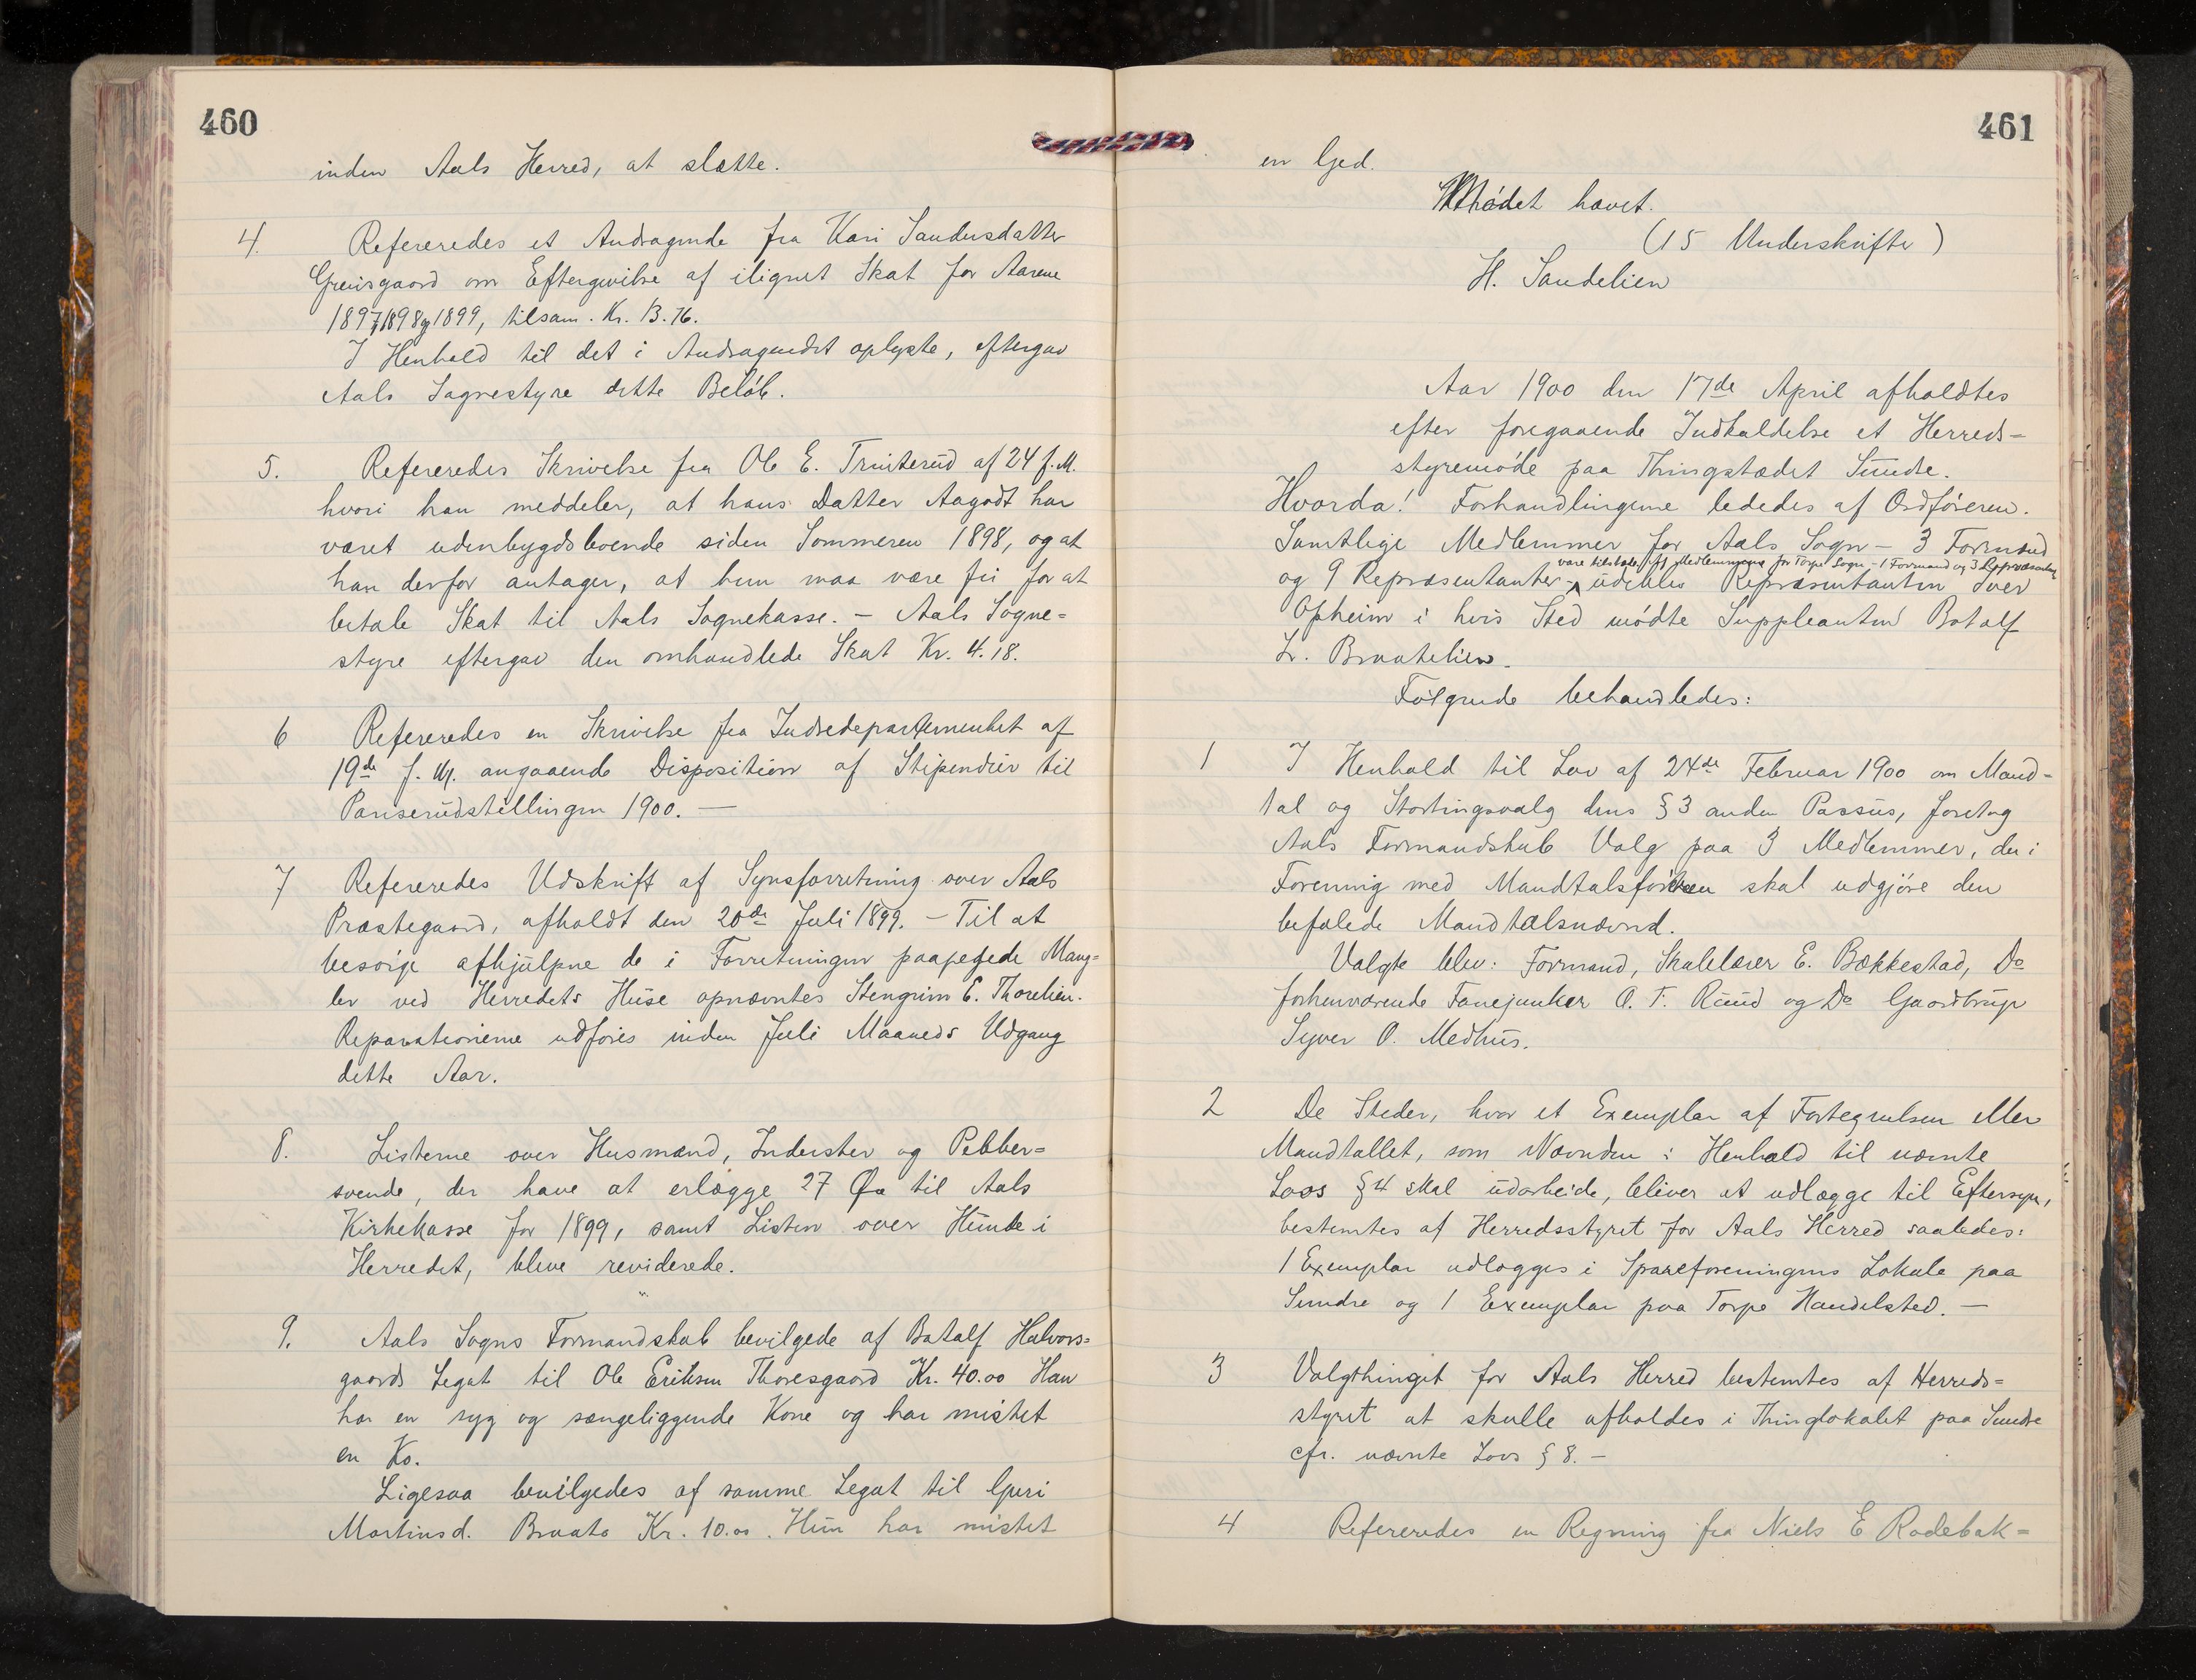 460
inden Aals Herred, at slætte.
4. Refereredes et Andragende fra Kari Sandersdatter
Greisgaard om Eftergivelse af ilignet Skat for Aarene
1897, 1898 og 1899, tilsam. Kr. 13.76.
I Henhold til det i Andragendet oplyste, eftergav
Aals Sognestyre dette Beløb.
5. Refereredes Skrivelse fra Ole E. Trinterud af 24 f. M.
hvori han meddeler, at hans Datter Aagodt har
været udenbygdsboende siden Sommeren 1898, og at
han derfor antager, at hun maa være fri for at
betale Skat til Aals Sognekasse. – Aals Sogne=
styre eftergav den omhandlede Skat Kr. 4.18.
6 Refereredes en Skrivelse fra Indredepartementet af
19de f. M. angaaende Disposition af Stipendier til
Pariserudstillingen 1900. —
7 Refereredes Udskrift af Synsforretning over Aals
Præstegaard, afholdt den 20de Juli 1899. – Til at
besørge afhjulpne de i Forretningen paapegede Mang=
ler ved Herredets Huse opnævntes Stengrim E. Thorelien.
Reparationerne udføres inden Juli Maaneds Udgang
dette Aar.
8. Listerne over Husmænd, Inderster og Pebber=
svende, der have at erlægge 27 Øre til Aals
Kirkekasse for 1899, samt Listen over Hunde i
Herredet, bleve reviderede.
9. Aals Sogns Formandskab bevilgede af Botolf Halvors=
gaards Legat til Ole Eriksen Thoresgaard Kr. 40.00 Han
har en syg og sængeliggende Kone og har mistet
en Ko.
Ligesaa bevilgedes af samme Legat til Guri
Martinsd. Braata Kr. 10.00. Hun har mistet
461
en Gjed.
Mødet hævet.
(15 Underskrifter)
H. Sandelien
Aar 1900 den 17de April afholdtes
efter foregaaende Indkaldelse et Herreds=
styremøde paa Thingstædet Sundre.
Hvorda! Forhandlingerne lededes af Ordføreren.
Samtlige Medlemmer for Aals Sogn – 3 Formænd
vare tilstede. Af Medlemmerne for Torpe Sogn – 1 Formand og 3 Repræsentanter
og 9 Repræsentanter – udeblev Repræsentanten Iver
Opheim i hvis Sted mødte Suppleanten Botolf
L. Braatelien.
Følgende behandledes:
1 I Henhold til Lov af 24de Februar 1900 om Mand=
tal og Stortingsvalg dens § 3 anden Passus, foretog
Aals Formandskab Valg paa 3 Medlemmer, der i
Forening med Mandtalsføreren skal udgjøre den
befalede Mandtalsnævnd.
Valgte blev: Formand, Skolelærer E. Bækkestad, Do
forhenværende Fanejunker O. T. Ruud og Do Gaardbruger
Syver O. Medhus.
2 De Steder, hvor et Exemplar af Fortegnelsen eller
Mandtallet, som Nævnden i Henhold til nævnte
Lovs § 4 skal udarbeide, bliver at udlægge til Eftersyn,
bestemtes af Herredsstyret for Aals Herred saaledes:
1 Exemplar udlægges i Spareforeningens Lokale paa
Sundre og 1 Exemplar paa Torpe Handelsted. —
3 Valgthinget for Aals Herred bestemtes af Herreds=
styret at skulle afholdes i Thinglokalet paa Sundre
cfr. nævnte Lovs § 8. –
4 Refereredes en Regning fra Niels E Rodebak=